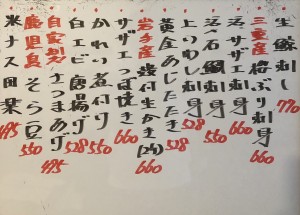 生鯨刺し 770
三重産 梅ぶり刺身 660
活サザエ刺身 660
活〆石鯛刺身
刺身 528
黄金あじたたき
岩手産 殻付生かき(2ケ) 660
サザエつぼ焼き 660
かれい煮付け 550
白エビ唐揚げ 528
自家製 さつまあげ 495
鹿児島産 そら豆 550
米ナス田楽 495